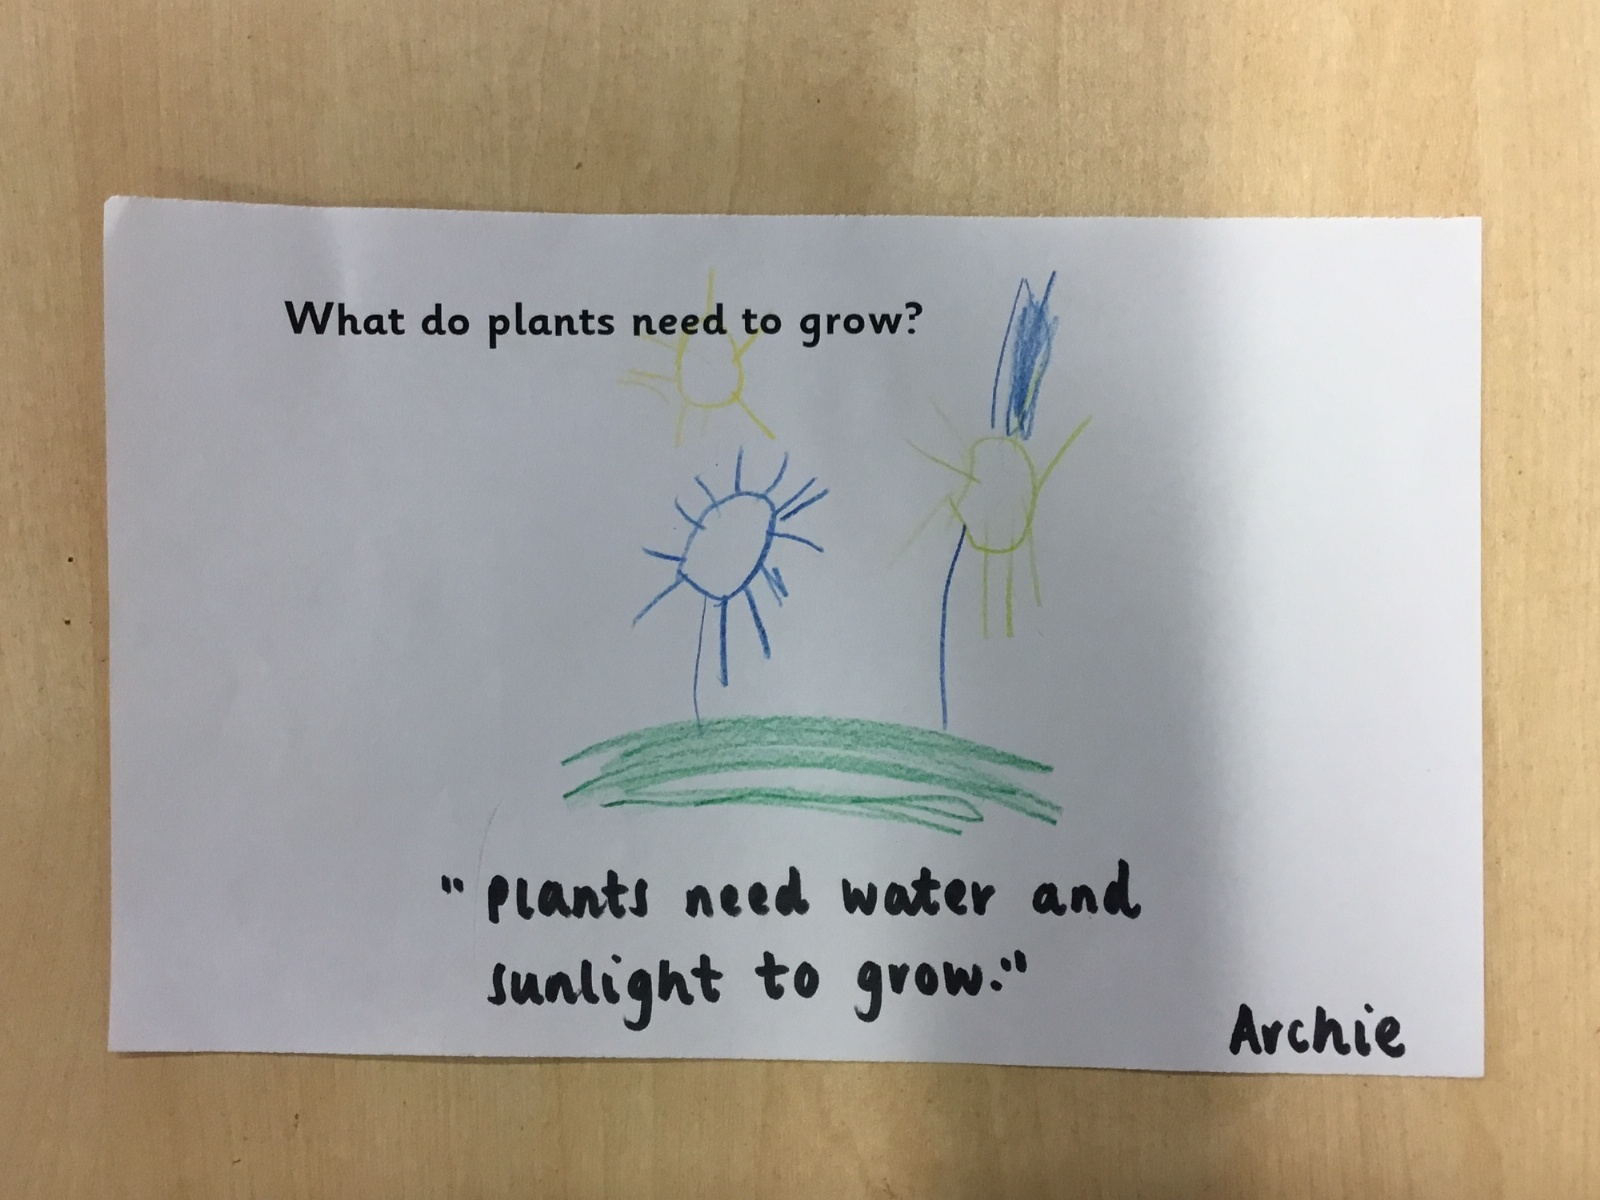 What do plants need to grow?
"Plants need water and
sunlight to grow."
Archie